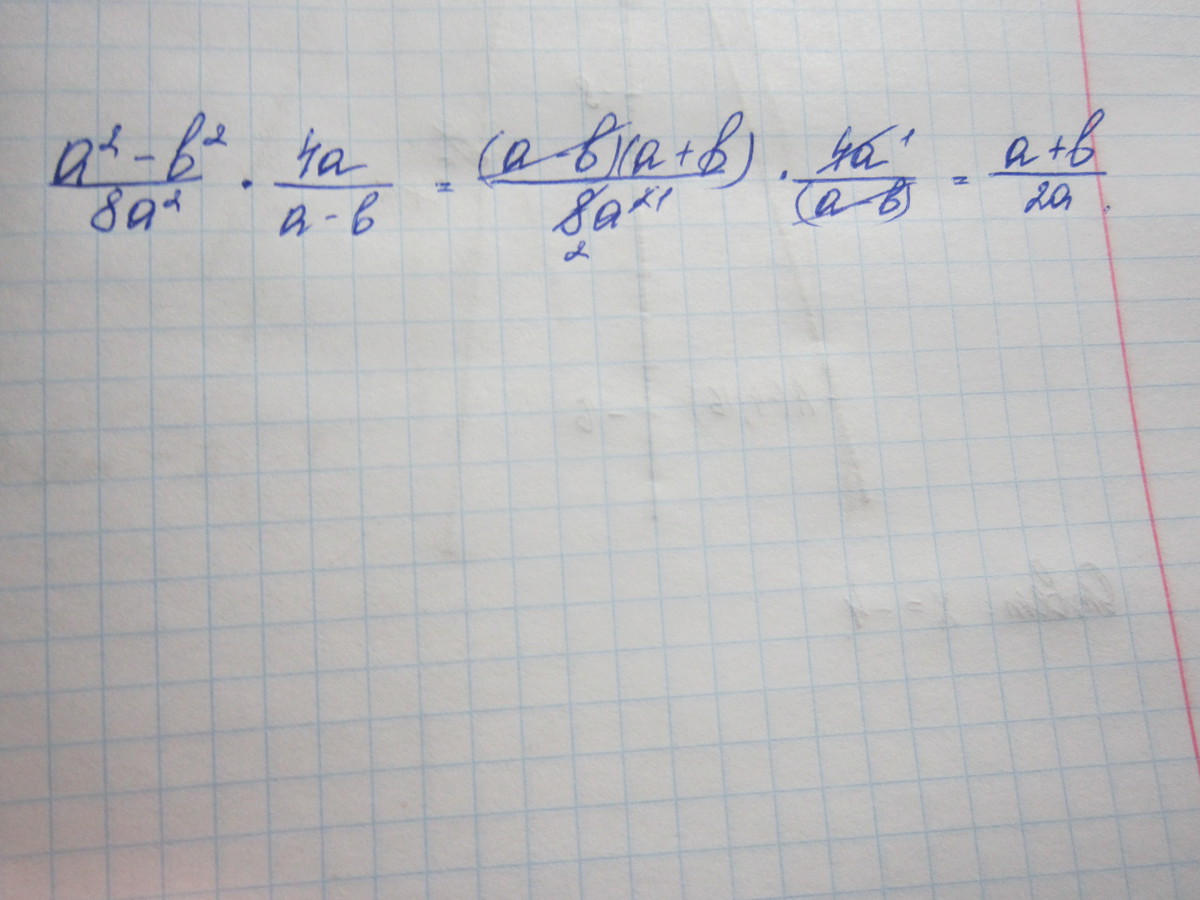 (a² - b²)/(8a²) · 4a/(a - b) = ((a - b)(a + b))/(8a²) · 4a/(a - b) = (a + b)/(2a).